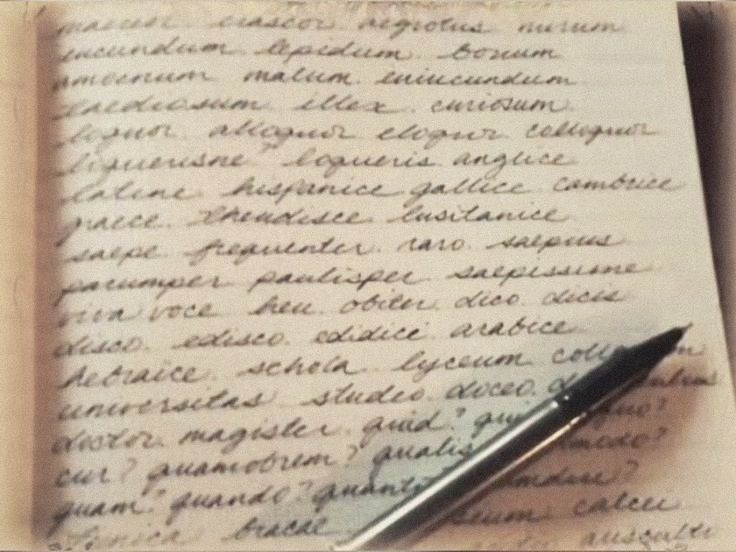 irascor aegrotus mirum
iucundum lepidum. bonum
amoenum malum. iniucundum
taediosum illex curiosum
loquor alloquor eloquor colloquor
liquerisne? loqueris anglice
latine hispanice gallice cambrice
graece. theudisce lusitanice
saepe frequenter raro saepius
parumper paulisper saepissime
viva voce heu obiter dico dicis
disco. edisco edidici arabice
hebraice. schola lyceum
universitas studeo doceo.
doctor magister quid?
cur? quamobrem? qualis
quam? quando?
tunica bracae calcei
ausculto